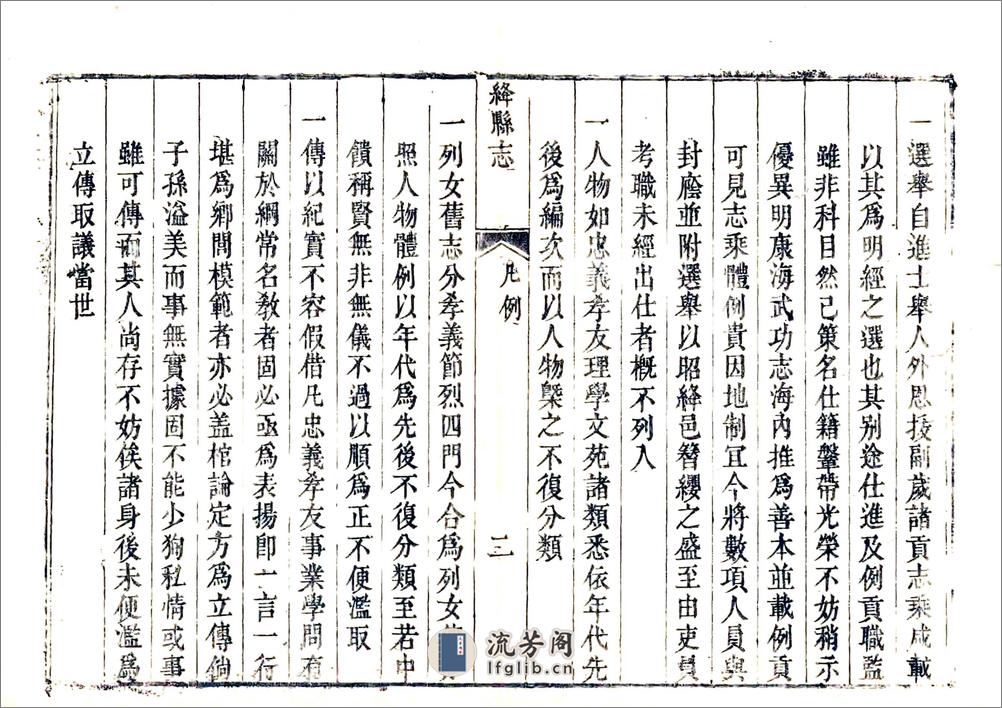 一選舉自進士舉人外恩援副歲諸貢志乘咸載
以其為明經之選也其别途仕進及例貢職監
雖非科目然已策名仕籍鞶帶光榮不妨稍示
優異明康海武功志海內推為善本並載例貢
可見志乘體例貴因地制宜今將數項人員與
封廕並附選舉以昭絳邑簪纓之盛至由吏員
考職未經出仕者槪不列入
一人物如忠義孝友理學文苑諸類悉依年代先
後為編次而以人物槩之不復分類
絳縣志
凡例
二
一列女舊志分孝義節烈四門今合為列女
照人物體例以年代為先後不復分類至若中
饋稱賢無非無儀不過以順為正不便濫取
一傳以紀實不容假借凡忠義孝友事業學問有
關於綱常名教者固必亟為表揚卽一言一行
堪為鄉閭模範者亦必盖棺論定方為立傳倘
子孫溢美而事無實據固不能少狥私情或事
雖可傳而其人尚存不妨俟諸身後未便濫為
立傳取議當世
流芳阁
lfglib.cn